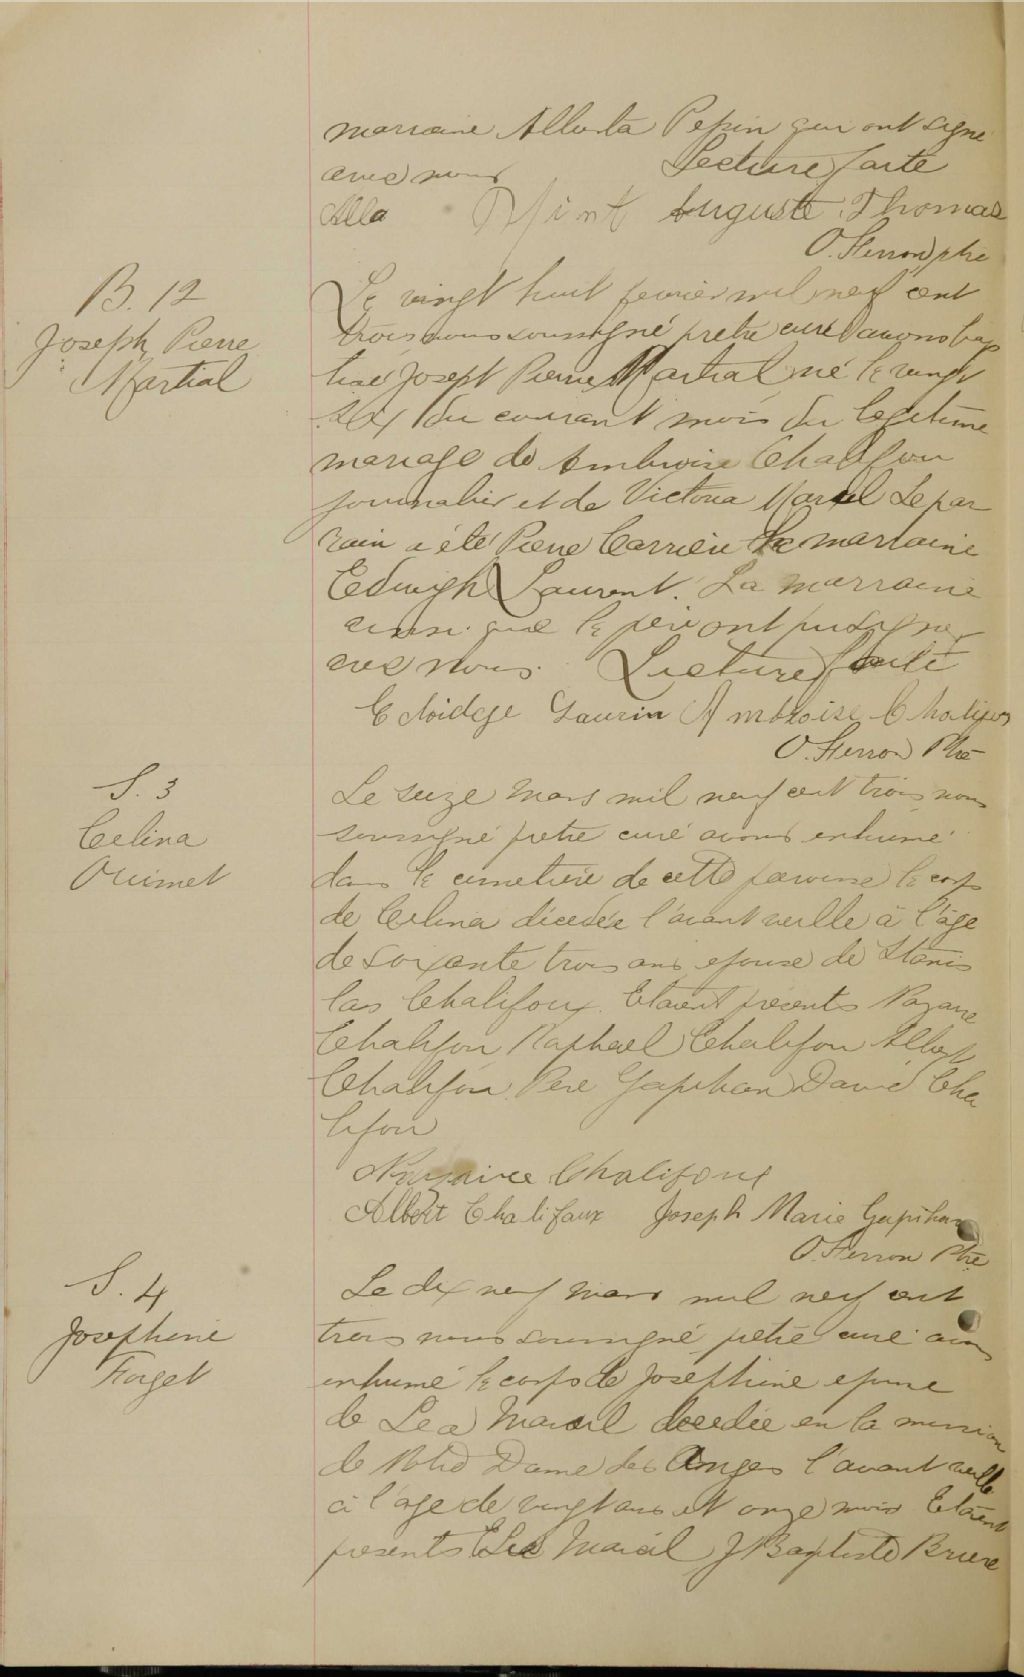 marraine Alberta Pepin qui ont signé
avec nous Lecture faite
Alla Auguste Thomas
O. Ferron ptre
B. 12
Joseph Pierre
Martial
Le vingt huit fevrier mil neuf cent
trois nous soussigné pretre curé avons bap
tisé Joseph Pierre Martial né le vingt
six du courant mois du legitime
mariage de Ambroise Chalifou
journalier et de Victoria Marcil Le par
rain a été Pierre Carriere la marraine
Edwigh Laurent. La marraine
ainsi que le pere ont pu signer
avec nous. Lecture faite
Edoidge Laurin Ambroise Chalifou
O. Ferron Ptre
S. 3
Celina
Ouimet
Le seize Mars mil neuf cent trois nous
soussigné pretre curé avons inhumé
dans le cimetiere de cette paroisse le corps
de Celina décedée l'avant veille à l'âge
de soixante trois ans epouse de Stanis
las Chalifoux. Etaient présents Nazaire
Chalifou Raphael Chalifou Albert
Chalifou Pere Gapihan David Cha
lifou
Nazaire Chalifoux
Albert Chalifaux Joseph Marie Gapihan
O. Ferron Ptre
S. 4
Josephine
Forget
Le dix neuf Mars mil neuf cent
trois nous soussigné pretre curé avons
inhumé le corps de Joséphine epouse
de Lea Marcil decedée en la mission
de Notre Dame des Anges l'avant veille
à l'age de vingt ans et onze mois Etaient
presents Marcil J Baptiste Briere